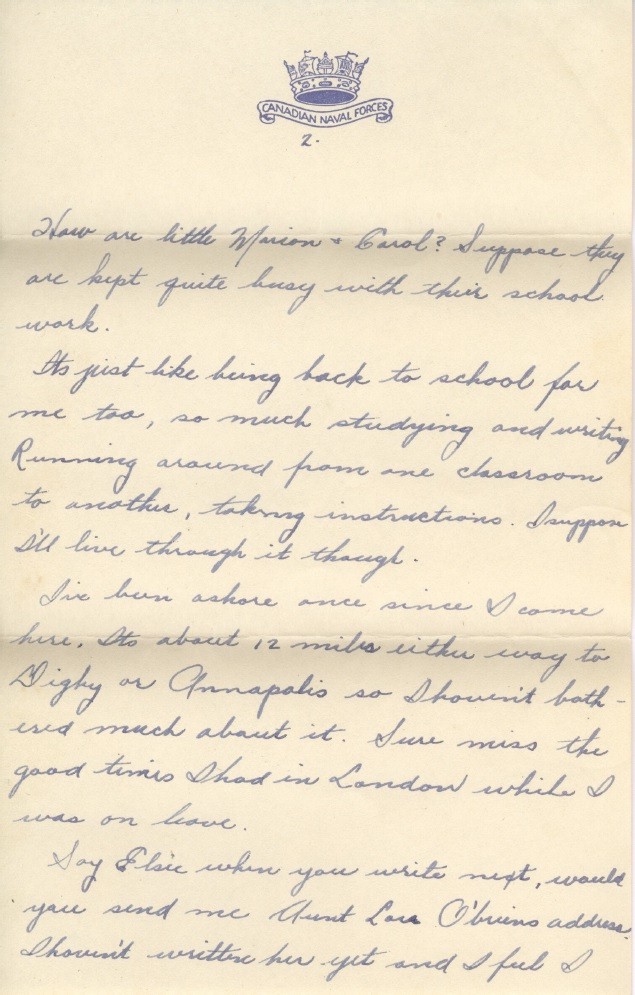 CANADIAN NAVAL FORCES
2.
How are little Marion + Carol? Suppose they
are kept quite busy with their school
work.
Its just like being back to school for
me too, so much studying and writing
Running around from one classroom
to another, taking instructions. I suppose
I'll live through it though.
I've been ashore once since I came
here. Its about 12 miles either way to
Digby or Annapolis so I haven't both-
ered much about it. Sure miss the
good times I had in London while I
was on leave.
Say Elsie when you write next, would
you send me Aunt Lou O'briens address.
I haven't written her yet and I feel I